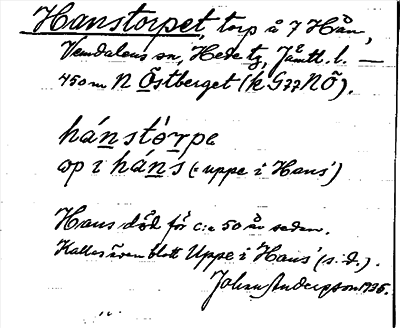 Hanstorpet, torp å 7 Hån,
Vemdalens sn, Hede tg, Jämtl. l. —
450 m N Östberget (k G77NÖ).
hánstórpe
op i háns (= uppe i Hans')
Hans död för c:a 50 år sedan.
Kallas även blott Uppe i Hans' (s. d.).
Johan Andersson 1936.